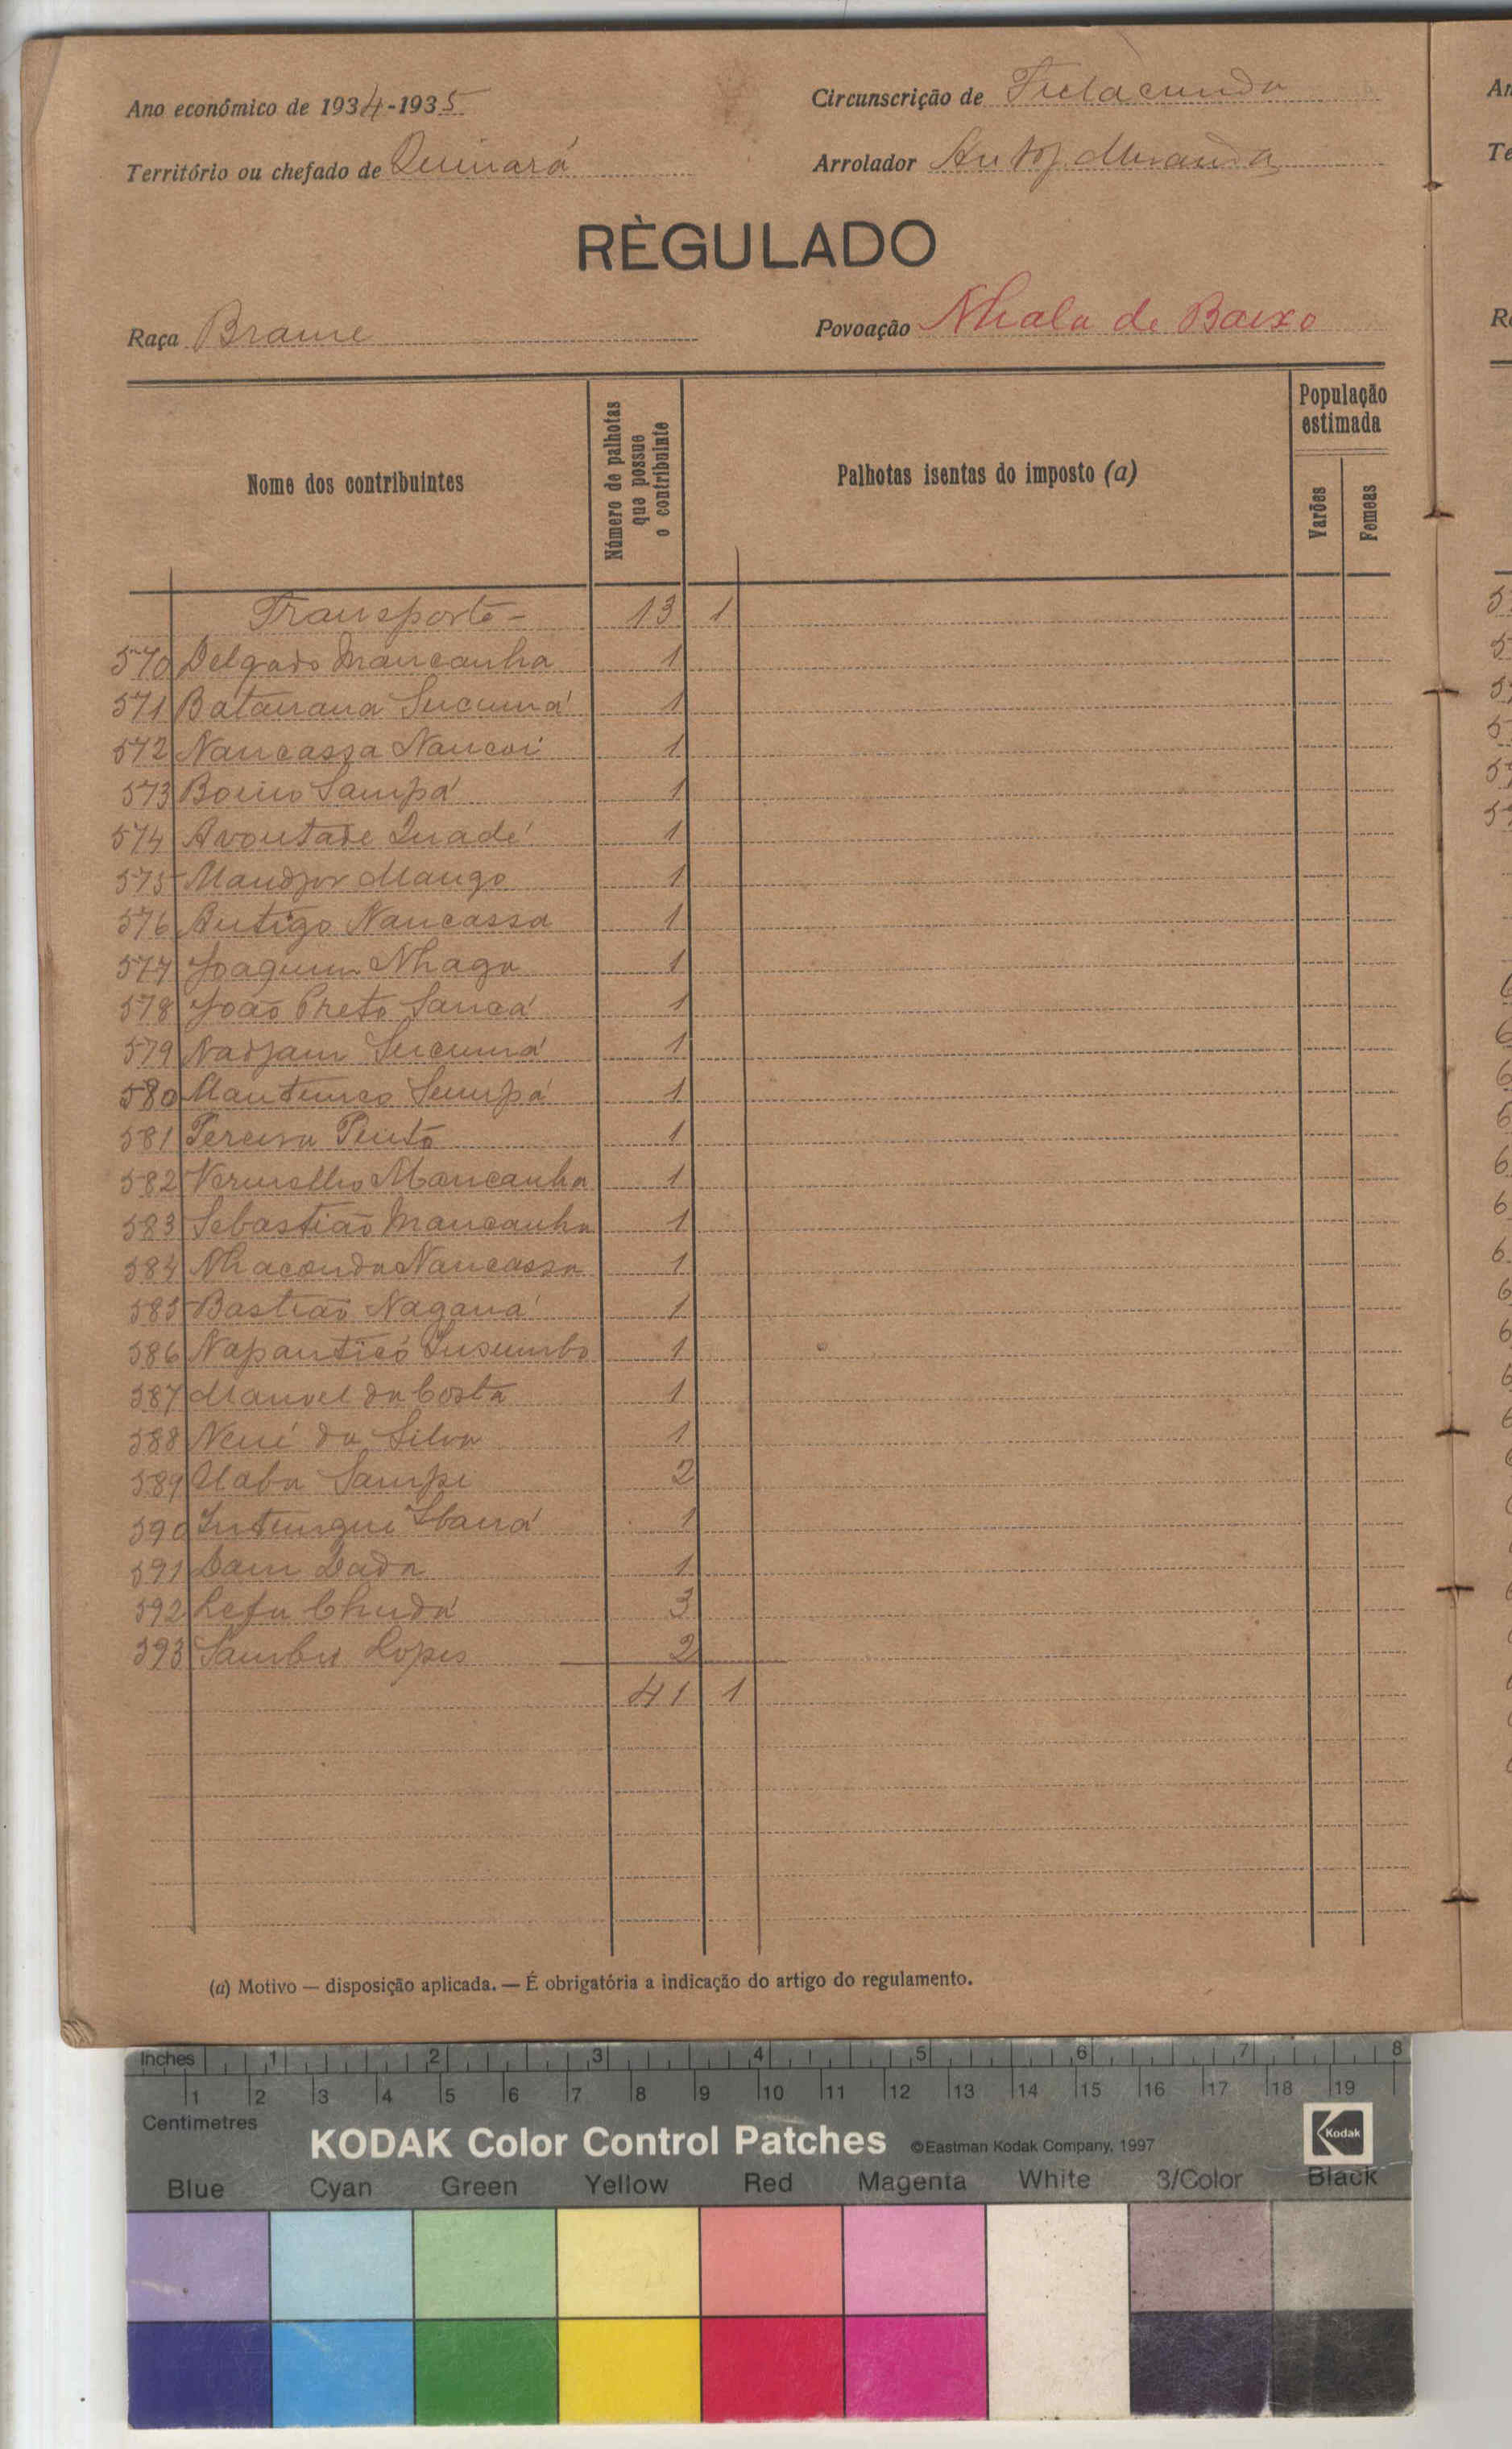 Ano económico de 1934-1935
Circunscrição de Fulacunda
Território ou chefado de Quinará
Arrolador
RÈGULADO
Raça Brame
Povoação Nhala de Baixo
Nome dos contribuintes
Número de palhotas que possue o contribuinte
Palhotas isentas do imposto (a)
População estimada
Varões
Femeas
Transporte - 13 1
570 Delgado Mancanha 1
571 Batanana Sucumá 1
572 Nancassa Nancoi 1
573 Boino Sampá 1
574 Avontade Quadé 1
575 Mandjor Mango 1
576 Antigo Nancassa 1
577 Joaquim Nhaga 1
578 João Preto Sancá 1
579 Nadjam Sucumá 1
580 1
581 Pereira Pinto 1
582 Vermelho Mancanha 1
583 Sebastião Mancanha 1
584 Nhaconda Nancassa 1
585 Bastião Naganá 1
586 1
587 Manuel da Costa 1
588 da Silva 1
589 2
590 1
591 Dam Dada 1
592 3
593 Sambu Lopes 2
41 1
(a) Motivo — disposição aplicada. — É obrigatória a indicação do artigo do regulamento.
Inches 1 2 3 4 5 6 7 8
1 2 3 4 5 6 7 8 9 10 11 12 13 14 15 16 17 18 19
Centimetres
KODAK Color Control Patches ©Eastman Kodak Company, 1997 Kodak
Blue Cyan Green Yellow Red Magenta White 3/Color Black